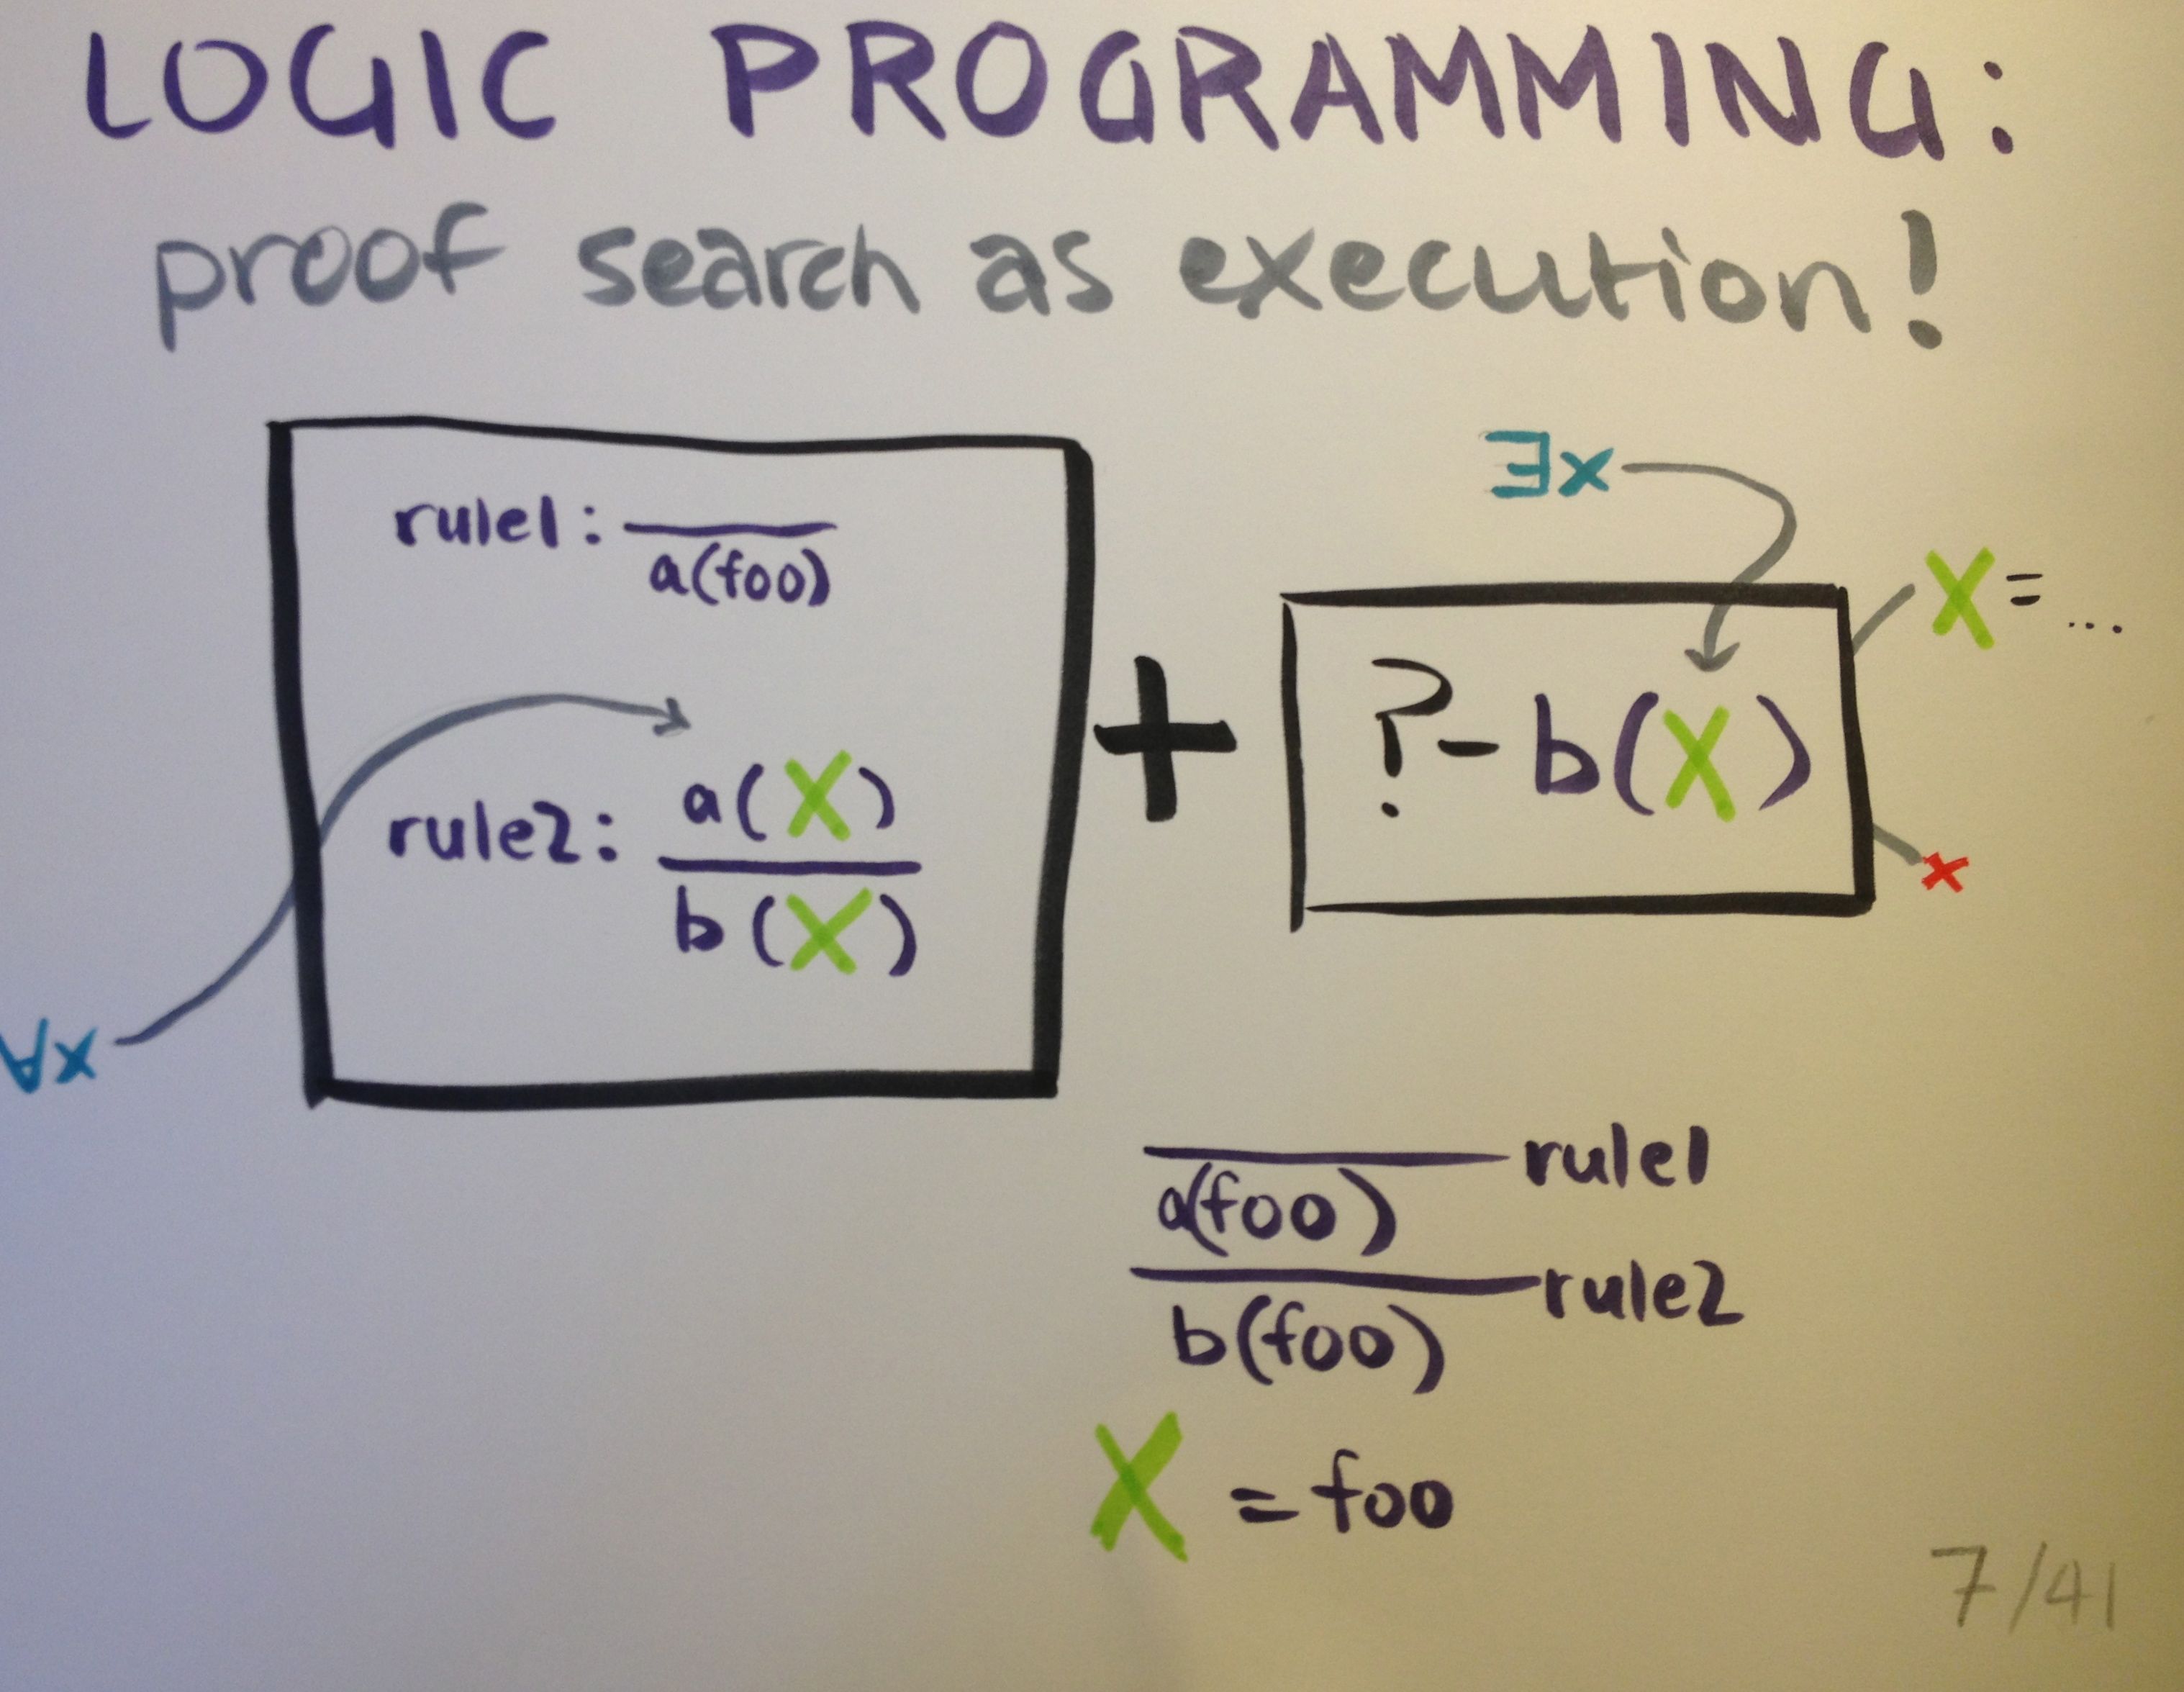 LOGIC PROGRAMMING:
proof search as execution!
rule1: a(foo)
∃x
X = ...
?- b(X)
x
rule2: a(X)
b(X)
∀x
rule1
a(foo)
rule2
b(foo)
X = foo
7/41